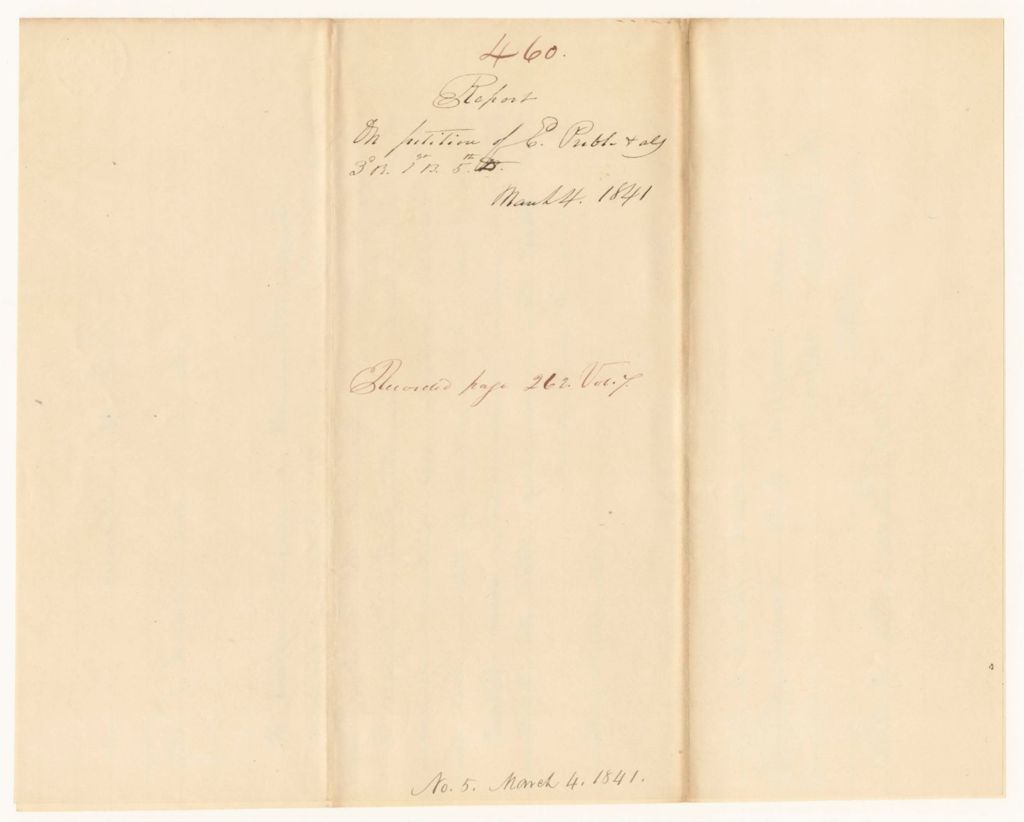 460.
Report
On petition of E. Preble & als
3ᵈ B. 1ˢᵗ B. 5ᵗʰ D.
March 4. 1841
Recorded page 262. Vol. 7.
No. 5. March 4. 1841.